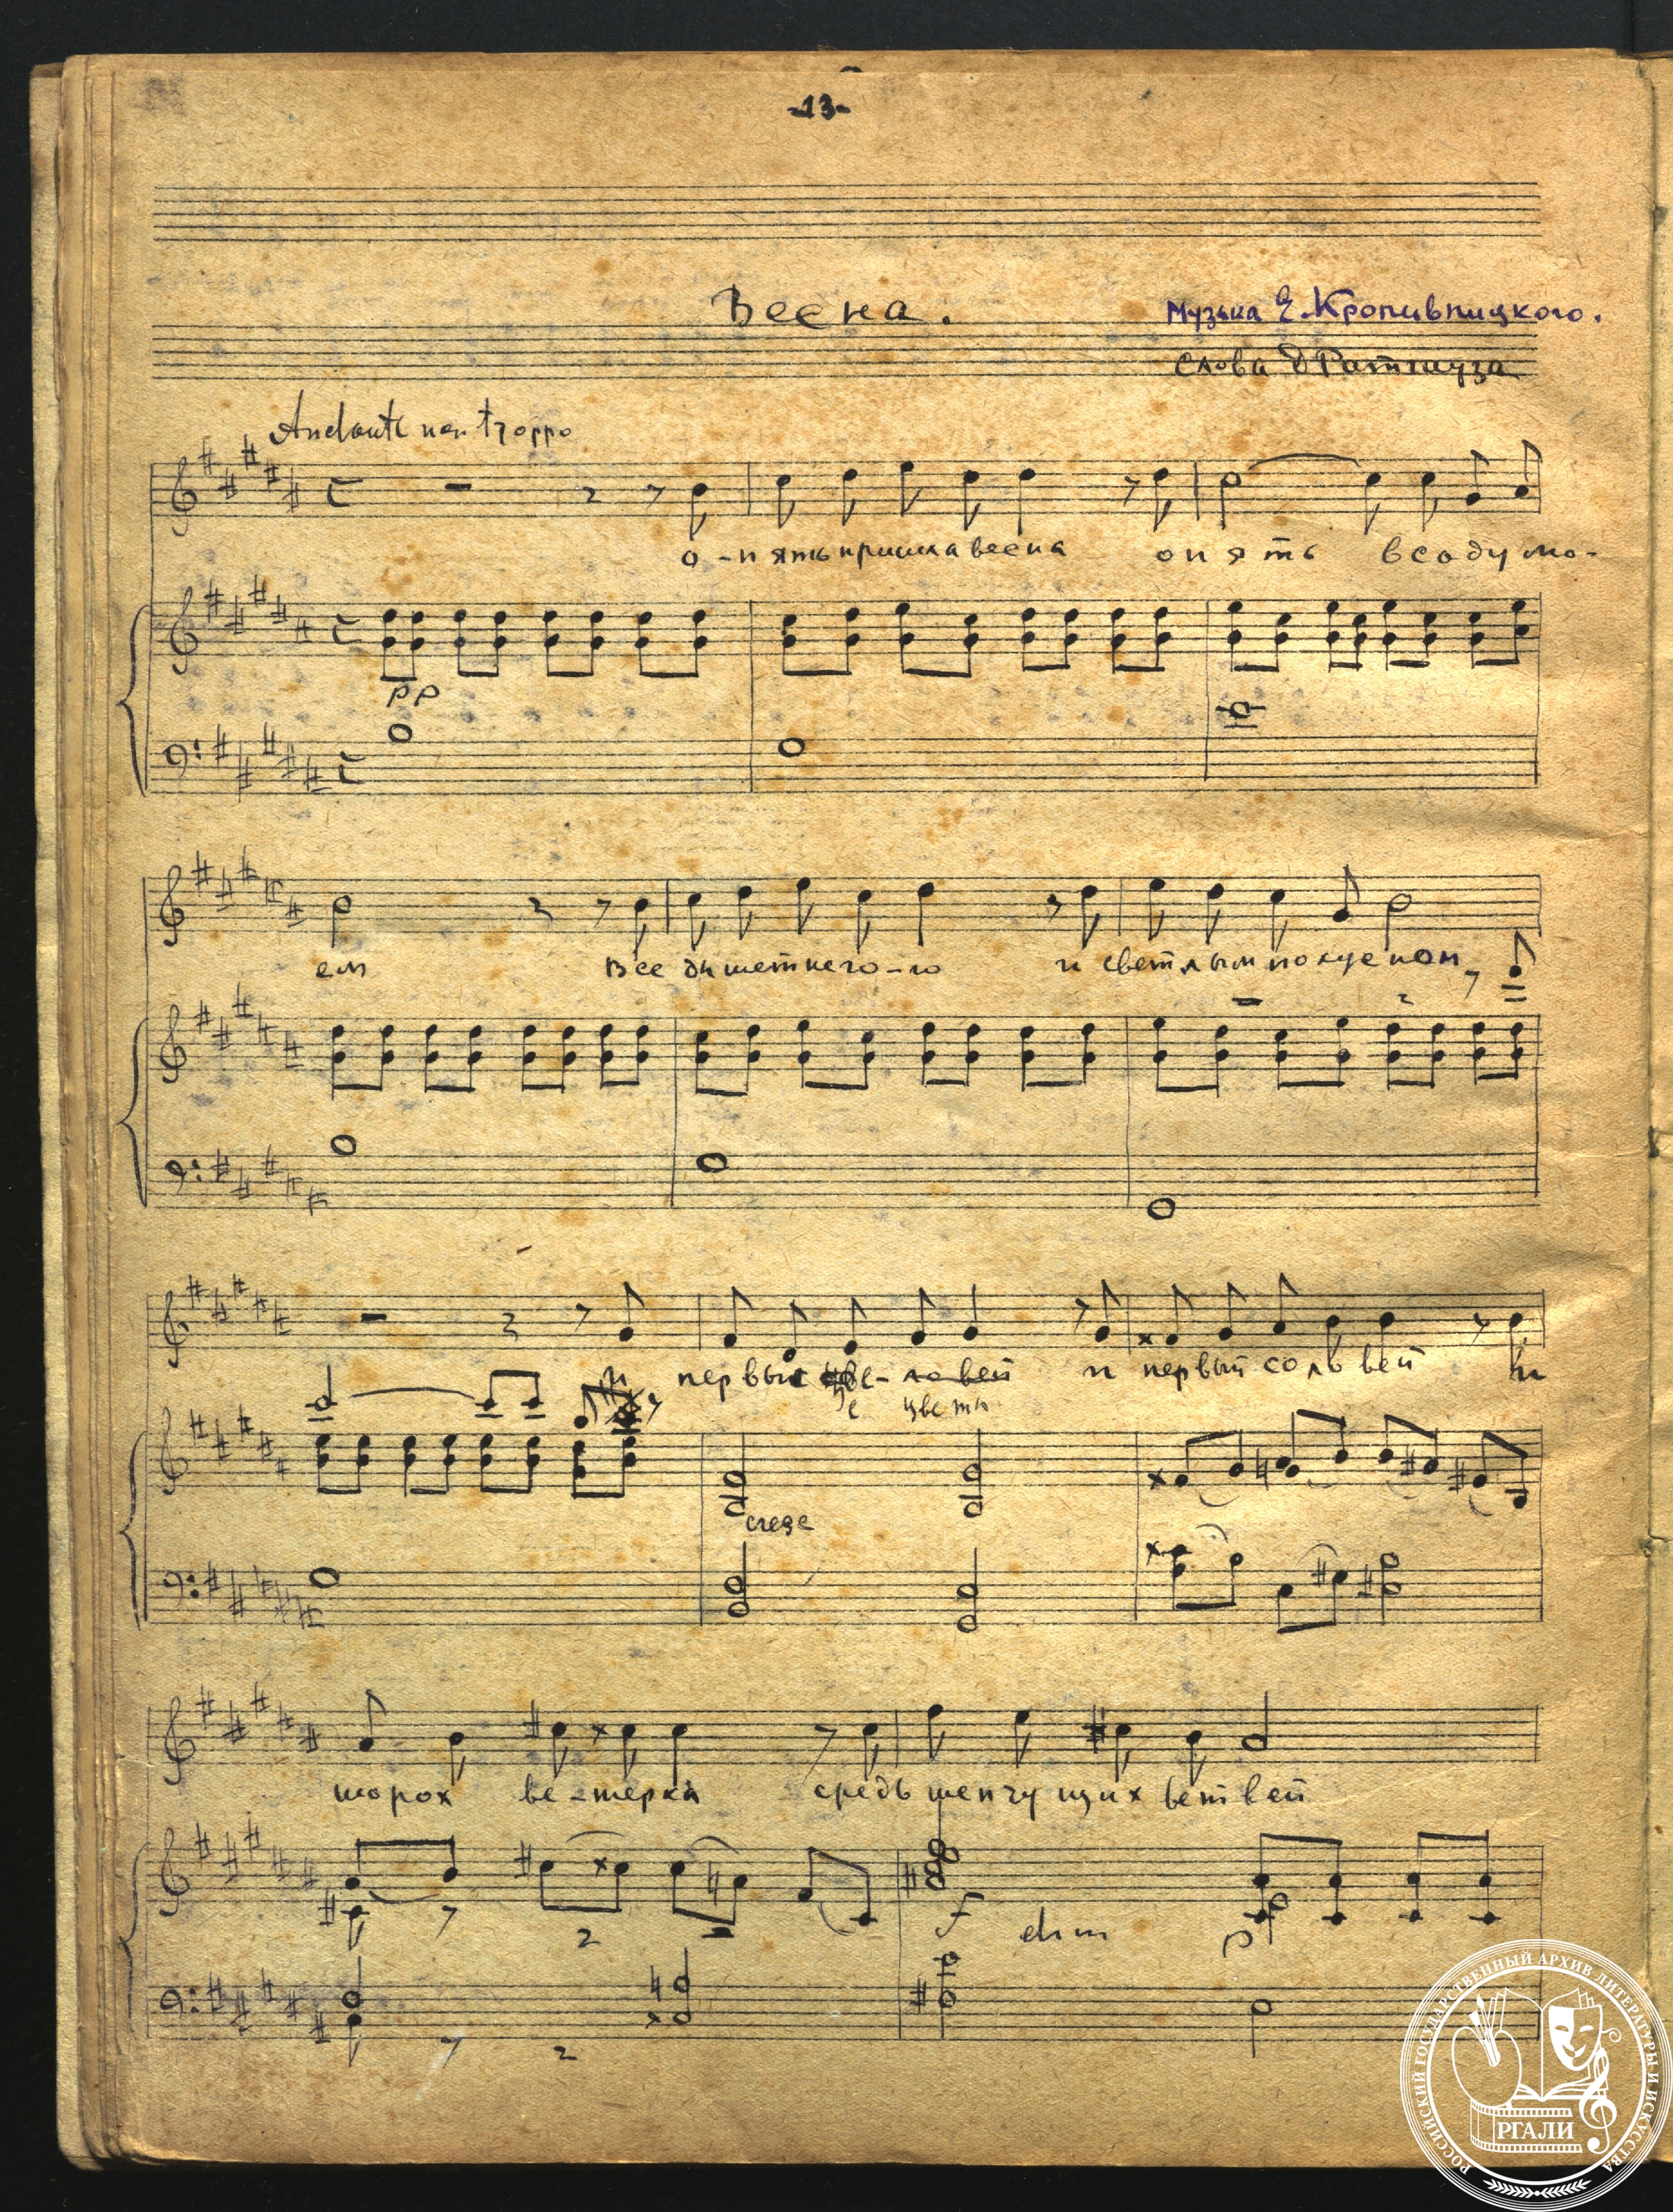 -13-
Весна.
Музыка Е. Кропивницкого.
Слова Д Ратгауза
Andante non troppo
о-пять пришла весна опять всаду мо-
pp
ем все дышет него-ю и светлым полусном
и первые цве- ловей и первый соловей и
е цветы
cresc
шорох ве-терка средь шепчущих ветвей
f dim p
РОССИЙСКИЙ ГОСУДАРСТВЕННЫЙ АРХИВ ЛИТЕРАТУРЫ И ИСКУССТВА
РГАЛИ